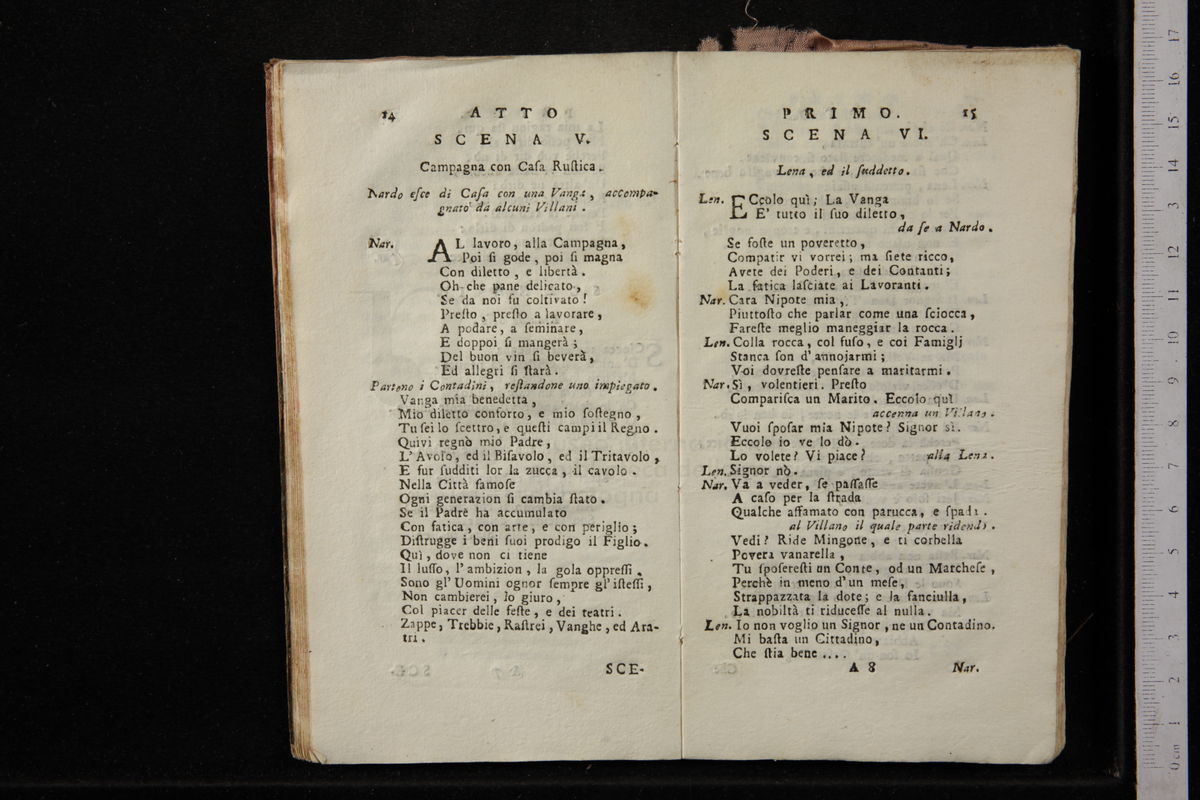 14 ATTO
SCENA V.
Campagna con Caſa Ruſtica.
Nardo eſce di Caſa con una Vanga, accompa-
gnato da alcuni Villani.
Nar. AL lavoro, alla Campagna,
Poi ſi gode, poi ſi magna
Con diletto, e libertà.
Oh che pane delicato,
Se da noi fu coltivato!
Preſto, preſto a lavorare,
A podare, a ſeminare,
E doppoi ſi mangerà;
Del buon vin ſi beverà,
Ed allegri ſi ſtarà.
Partono i Contadini, reſtandone uno impiegato.
Vanga mia benedetta,
Mio diletto conforto, e mio ſoſtegno,
Tu ſei lo ſcettro, e queſti campi il Regno.
Quivi regnò mio Padre,
L'Avolo, ed il Biſavolo, ed il Tritavolo,
E fur ſudditi lor la zucca, il cavolo.
Nella Città famoſe
Ogni generazion ſi cambia ſtato.
Se il Padre ha accumulato
Con fatica, con arte, e con periglio;
Diſtrugge i beni ſuoi prodigo il Figlio.
Quì, dove non ci tiene
Il luſſo, l'ambizion, la gola oppreſſi,
Sono gl'Uomini ognor ſempre gl'iſteſſi,
Non cambierei, lo giuro,
Col piacer delle feſte, e dei teatri.
Zappe, Trebbie, Raſtrei, Vanghe, ed Ara-
tri.
SCE-
PRIMO. 15
SCENA VI.
Lena, ed il ſuddetto.
Len. ECcolo quì; La Vanga
E' tutto il ſuo diletto,
da ſe a Nardo.
Se foſte un poveretto,
Compatir vi vorrei; ma ſiete ricco,
Avete dei Poderi, e dei Contanti;
La fatica laſciate ai Lavoranti.
Nar. Cara Nipote mia,
Piuttoſto che parlar come una ſciocca,
Fareſte meglio maneggiar la rocca.
Len. Colla rocca, col fuſo, e coi Famiglj
Stanca ſon d'annojarmi;
Voi dovreſte penſare a maritarmi.
Nar. Sì, volentieri. Preſto
Compariſca un Marito. Eccolo quì
accenna un Villano.
Vuoi ſpoſar mia Nipote? Signor sì.
Eccolo io ve lo dò.
Lo volete? Vi piace? alla Lena.
Len. Signor nò.
Nar. Va a veder, ſe paſſaſſe
A caſo per la ſtrada
Qualche affamato con parucca, e ſpada.
al Villano il quale parte ridendo.
Vedi? Ride Mingone, e ti corbella
Povera vanarella,
Tu ſpoſereſti un Conte, od un Marcheſe,
Perchè in meno d'un meſe,
Strappazzata la dote; e la fanciulla,
La nobiltà ti riduceſſe al nulla.
Len. Io non voglio un Signor, ne un Contadino.
Mi baſta un Cittadino,
Che ſtia bene....
A 8 Nar.
17
16
15
14
13
12
11
10
9
8
7
6
5
4
3
2
1
0 cm